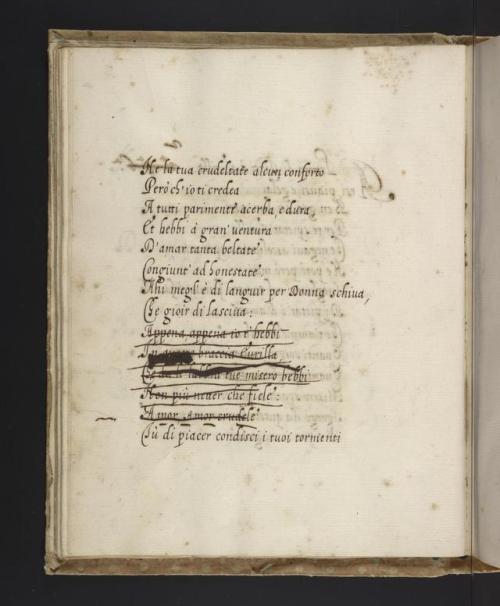 Ne la tua crudeltate alcun conforto
Però ch'io ti credea
A tutti parimente acerba, e dura,
Et hebbi à gran' ventura
D'amar tanta beltate
Congiunt' ad honestate:
Ahi megl' è di languir per Donna schiua,
Che gioir di lasciua:
Appena appena io t' hebbi
In braccia Eurilla
tue misero bebbi
Non più che fiele:
Amor, Amor crudele
Tù di piacer condisci i tuoi tormenti